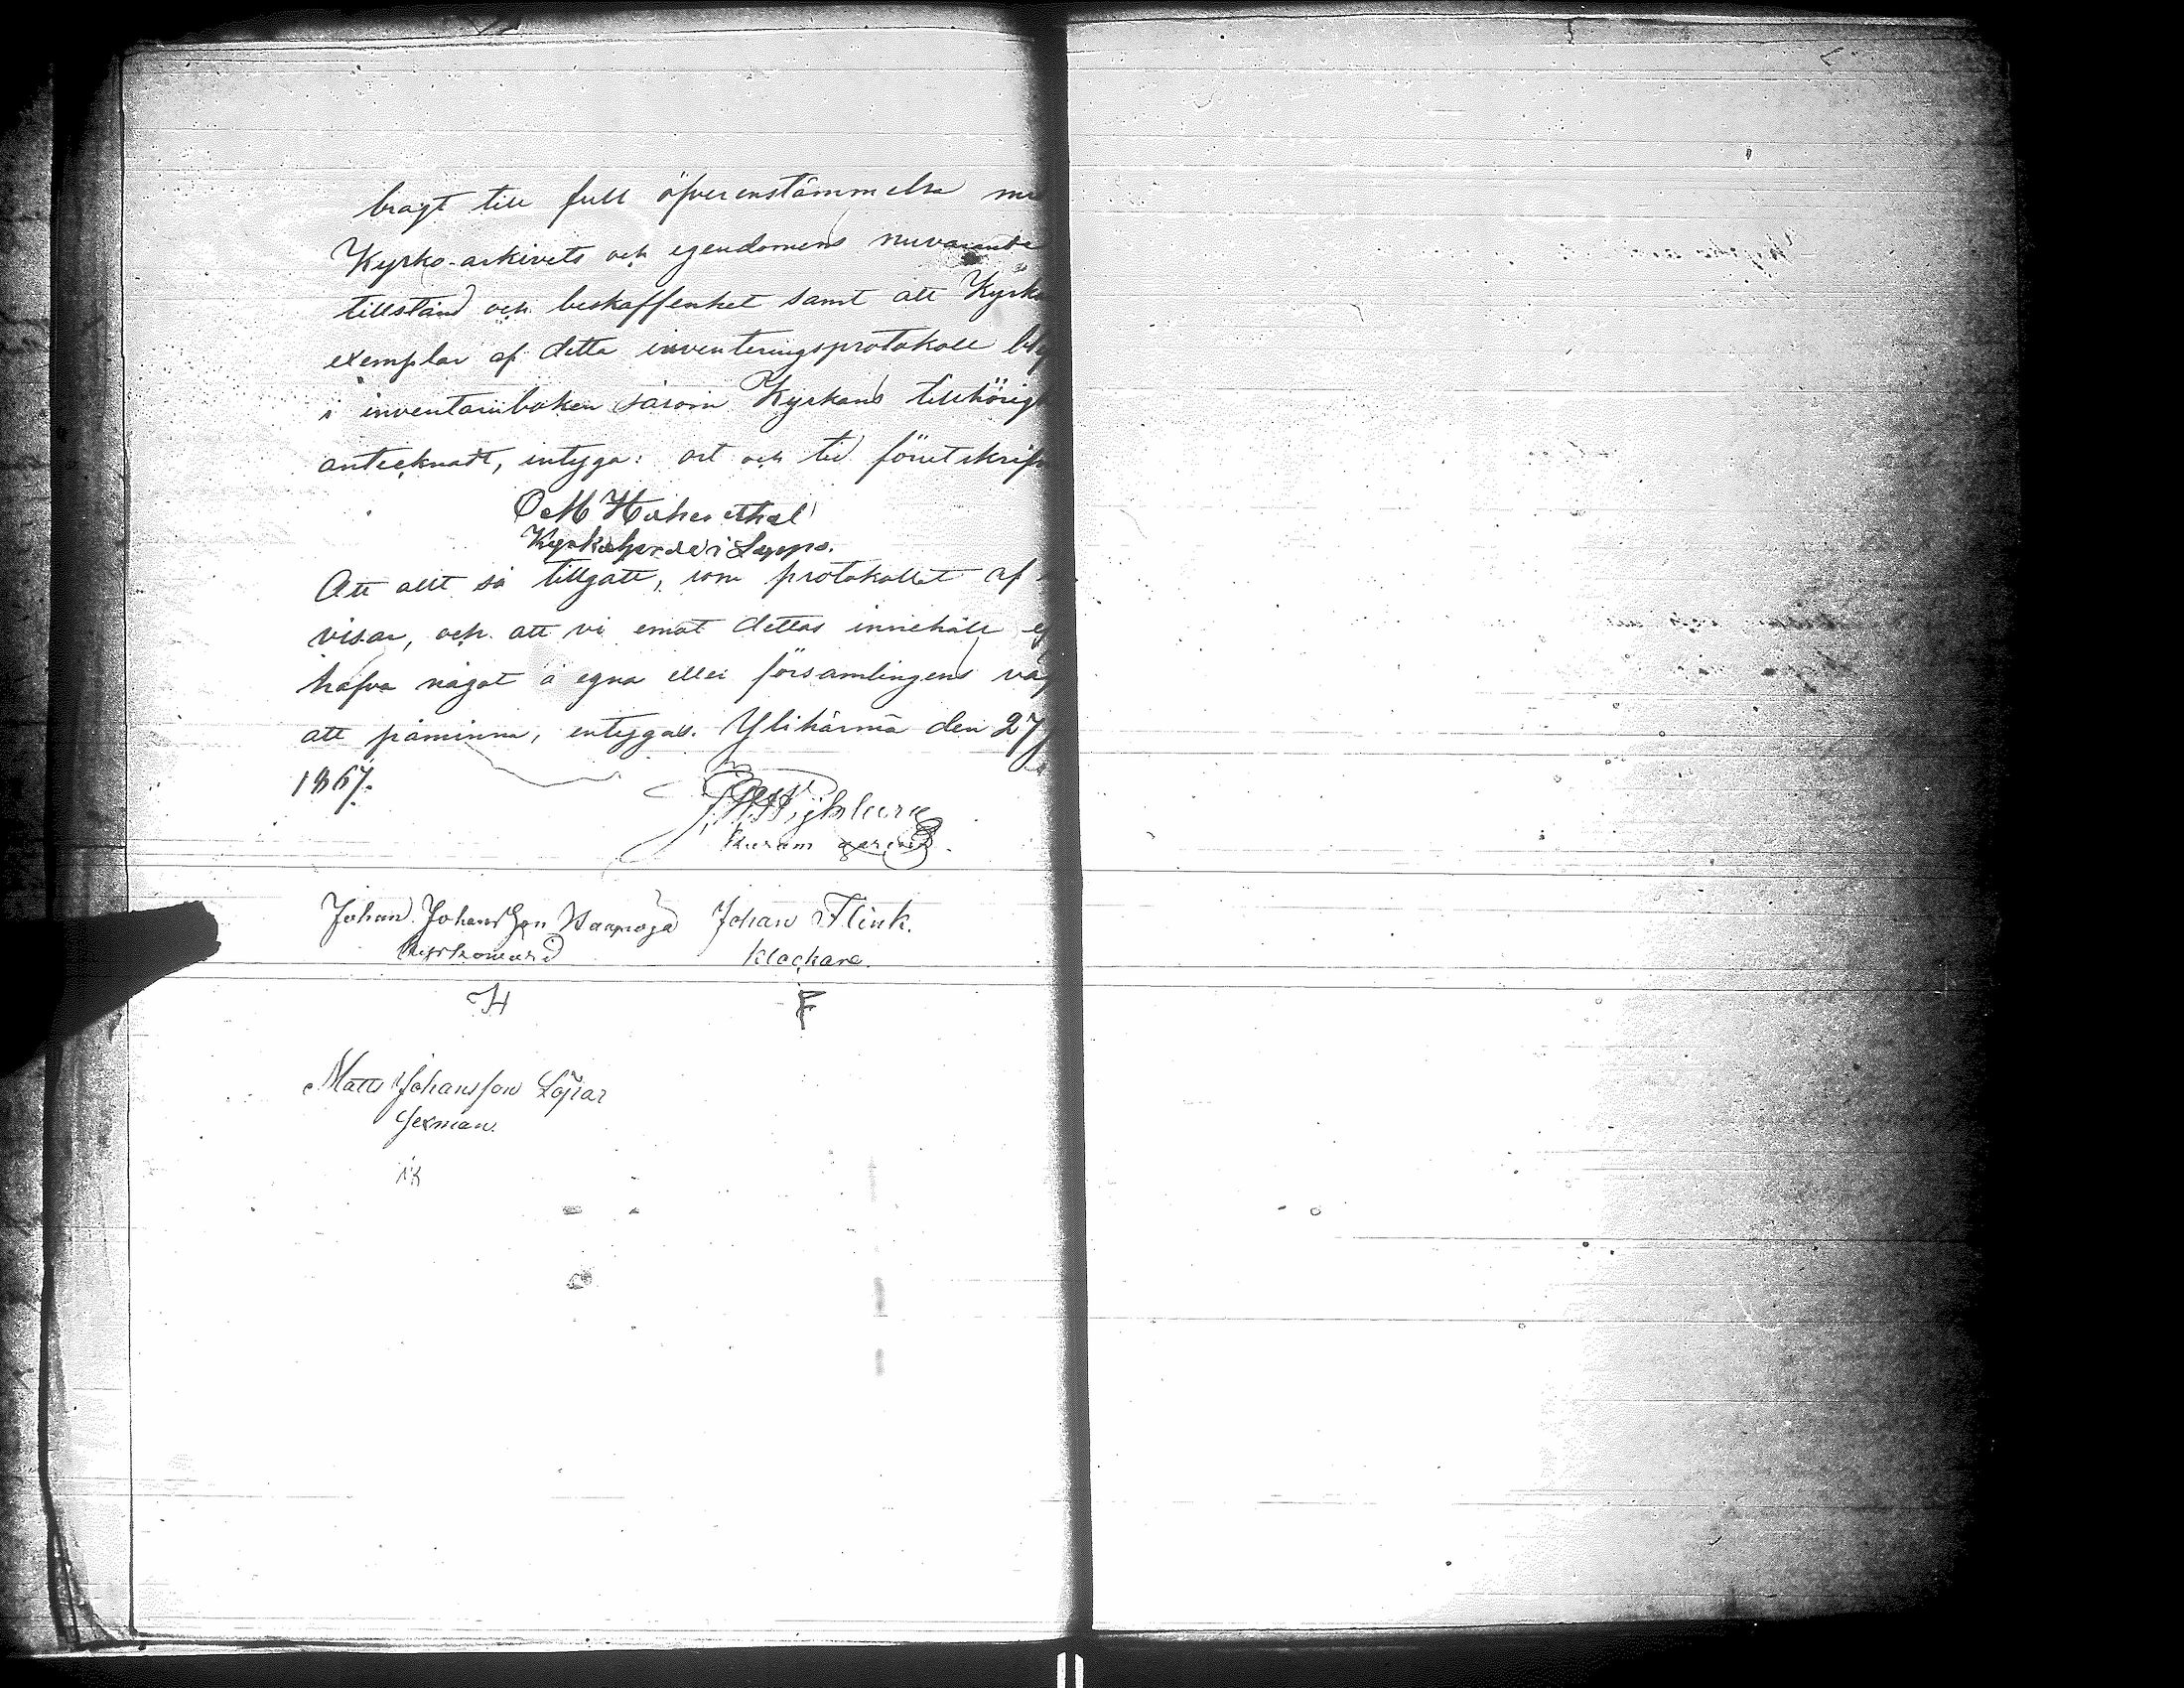 bragt till full öfverensstämmelse me
Kyrko-arkivets och egendomens nuvarande
tillstånd och beskaffenhet samt att Kyrko
exemplar af detta inventeringsprotokoll bli
i inventariiboken såsom Kyrkans tillhörig
antecknadt, intyga: ort och tid förutskrif
O M Hohenthal
Kyrkoherde i Lappo.
Att allt så tillgått, som protokollet af
visar, och att vi emot dettas innehåll ej
hafva något å egna eller församlingens väg
att påminna, intygas. Ylihärmä den 27
1867.
Johan Johansson Johan Flink.
Kyrkovärd Klockare.
H F
Matts Johansson
Sexman.